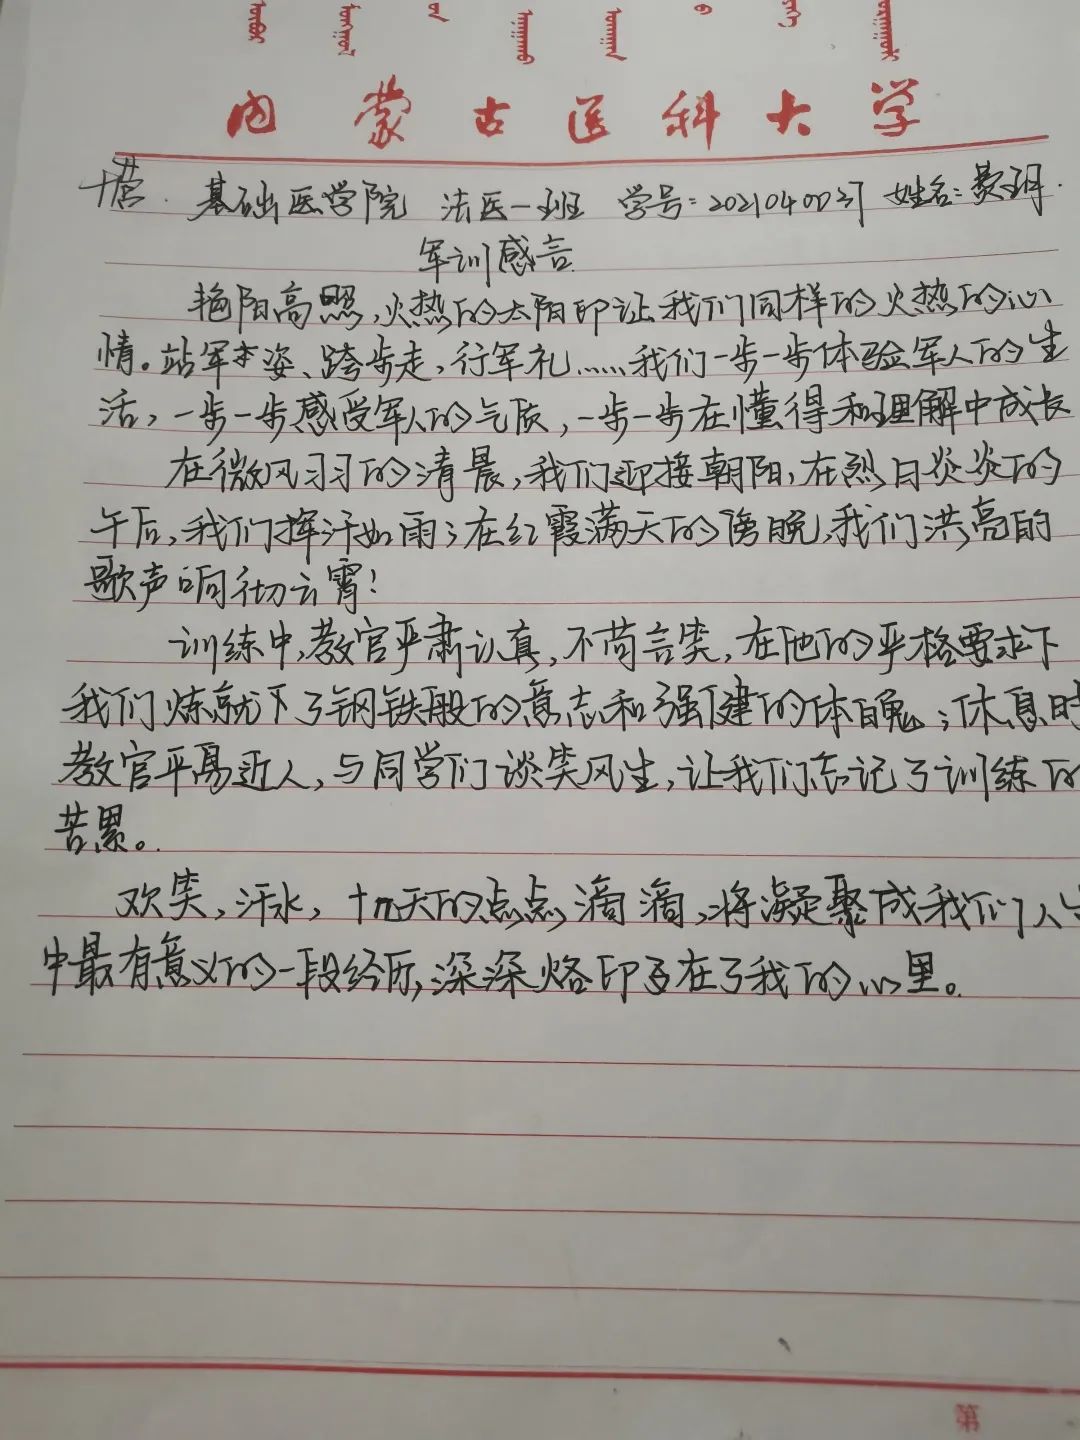 内蒙古医科大学
十营. 基础医学院 法医一班 学号:20210400 姓名:
军训感言
艳阳高照,火热的太阳印让我们同样的火热的心
情。站军本姿、跨步走,行军礼……我们一步一步体验军人的生
活,一步一步感受军人的气质,一步一步在懂得和理解中成长
在微风习习的清晨,我们迎接朝阳,在烈日炎炎的
午后,我们挥汗如雨;在红霞满天的傍晚,我们洪亮的
歌声响彻云霄!
训练中,教官严肃认真,不苟言笑,在他的严格要求下
我们炼就下了钢铁般的意志和强健的体魄;休息时
教官平易近人,与同学们谈笑风生,让我们忘记了训练的
苦累。
欢笑,汗水,十几天的点点滴滴,将凝聚成我们人生
中最有意义的一段经历,深深烙印在了我的心里。
第